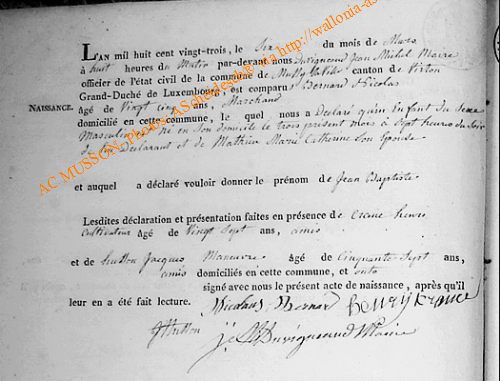 L'AN mil huit cent vingt-trois, le Six du mois de Mars
à huit heures du Matin par-devant nous Duvigneaud Jean Michel Maire
officier de l'état civil de la commune de Mussy canton de Virton
Grand-Duché de Luxembourg, est comparu Bernard Nicolas
NAISSANCE.
âgé de Vingt cinq ans, Marchand
domicilié en cette commune, le quel nous a Déclaré qu'un Enfant du Sexe
Masculin est né en Son domicile le trois présent mois à Sept heures du Soir
de lui Déclarant et de Mathieu Marie Catherine Son Epouse
et auquel a déclaré vouloir donner le prénom de Jean Baptiste
Lesdites déclaration et présentation faites en présence de henry
Cultivateur âgé de Vingt Sept ans, amis
et de hutton Jacques Manœuvre âgé de Cinquante Sept ans,
amis domiciliés en cette commune, et ont
signé avec nous le présent acte de naissance, après qu'il
leur en a été fait lecture. Nicolas Bernard HENRY
J Hutton
J. M Duvigneaud Maire
AC MUSSON http://wallonia-as